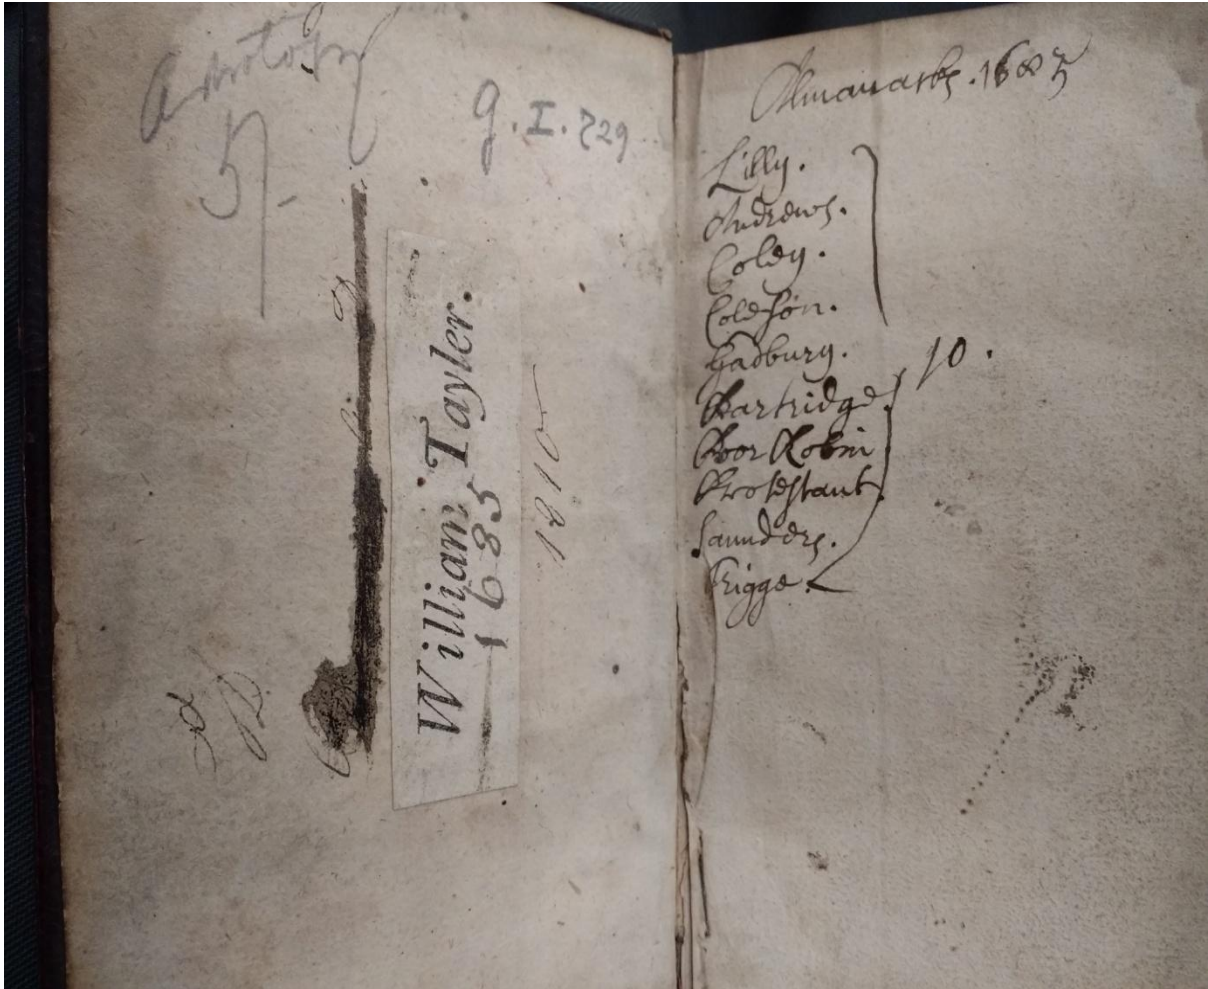 Astrology
5/-
g. I. 729
William Tayler.
1685
1810
Almanacks. 1685
Lilly.
Andrews.
Coley.
Coleson.
Gadbury.
Partridge
Poor Robin
Protestant
Saunders.
Trigge.
10.